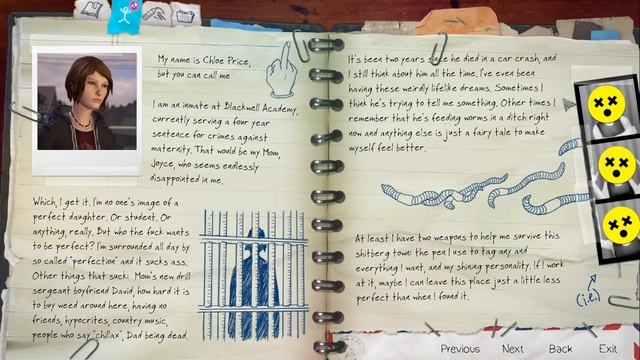 My name is Chloe Price,
but you can call me
I am an inmate at Blackwell Academy,
currently serving a four year
sentence for crimes against
maternity. That would be my Mom,
Joyce, who seems endlessly
disappointed in me.
Which, I get it. I'm no one's image of a
perfect daughter. Or student. Or
anything, really. But who the fuck wants
to be perfect? I'm surrounded all day by
so called "perfection" and it sucks ass.
Other things that suck: Mom's new drill
sergeant boyfriend David, how hard it is
to buy weed around here, having no
friends, hypocrites, country music,
people who say "chillax", Dad being dead.
It's been two years since he died in a car crash, and
I still think about him all the time. I've even been
having these weirdly lifelike dreams. Sometimes I
think he's trying to tell me something. Other times I
remember that he's feeding worms in a ditch right
now and anything else is just a fairy tale to make
myself feel better.
At least I have two weapons to help me survive this
shitberg town: the pen I use to tag any and
everything I want, and my shining personality. If I work
at it, maybe I can leave this place just a little less
perfect than when I found it.
(i.e.)
Previous Next Back Exit